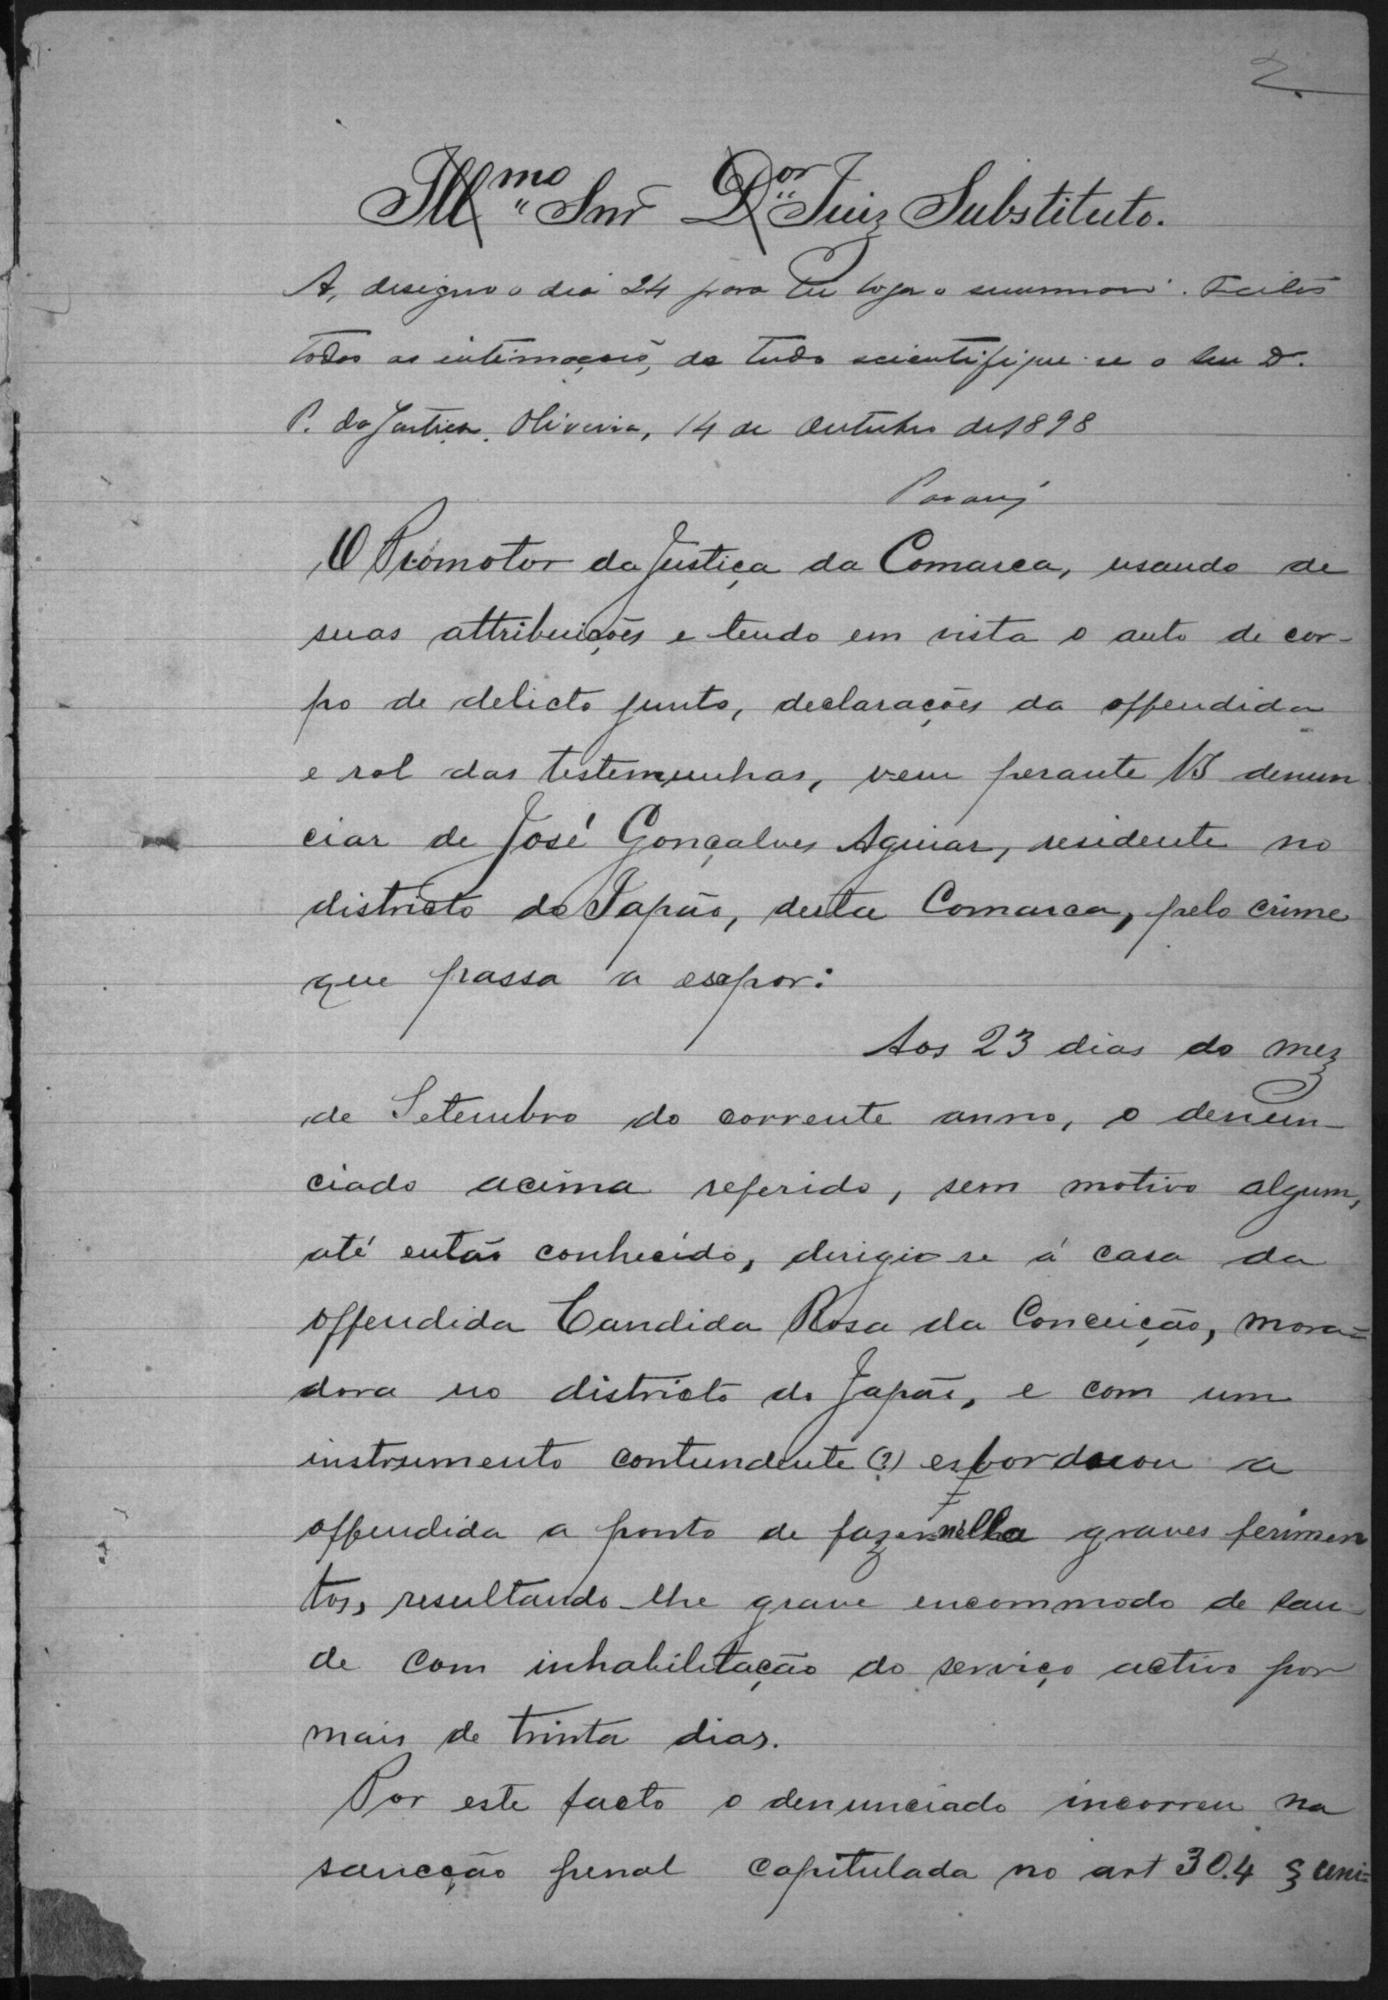 2.
Illmo Snr Dor Juiz Substituto.
A, designo o dia 24 para ter logar o summario. Feitas
todas as intimações, de tudo scientifique-se o Snr D.
P. da Justiça. Oliveira, 14 de Outubro de 1898
O Promotor da Justiça da Comarca, usando de
suas attribuições e tendo em vista o auto de cor-
po de delicto junto, declarações da offendida
e rol das testemunhas, vem perante VS denun
ciar de José Gonçalves Aguiar, residente no
districto do Japão, desta Comarca, pelo crime
que passa a expor:
Aos 23 dias do mez
de Setembro do corrente anno, o denun-
ciado acima referido, sem motivo algum,
até então conhecido, dirigio-se á casa da
offendida Candida Rosa da Conceição, mora=
dora no districto do Japão, e com um
instrumento contundente (?) esbordoou a
offendida a ponto de fazer nella graves ferimen
tos, resultando-lhe grave encommodo de sau-
de com inhabilitação do serviço activo por
mais de trinta dias.
Por este facto o denunciado incorreu na
sancção penal capitulada no art 304 § uni=